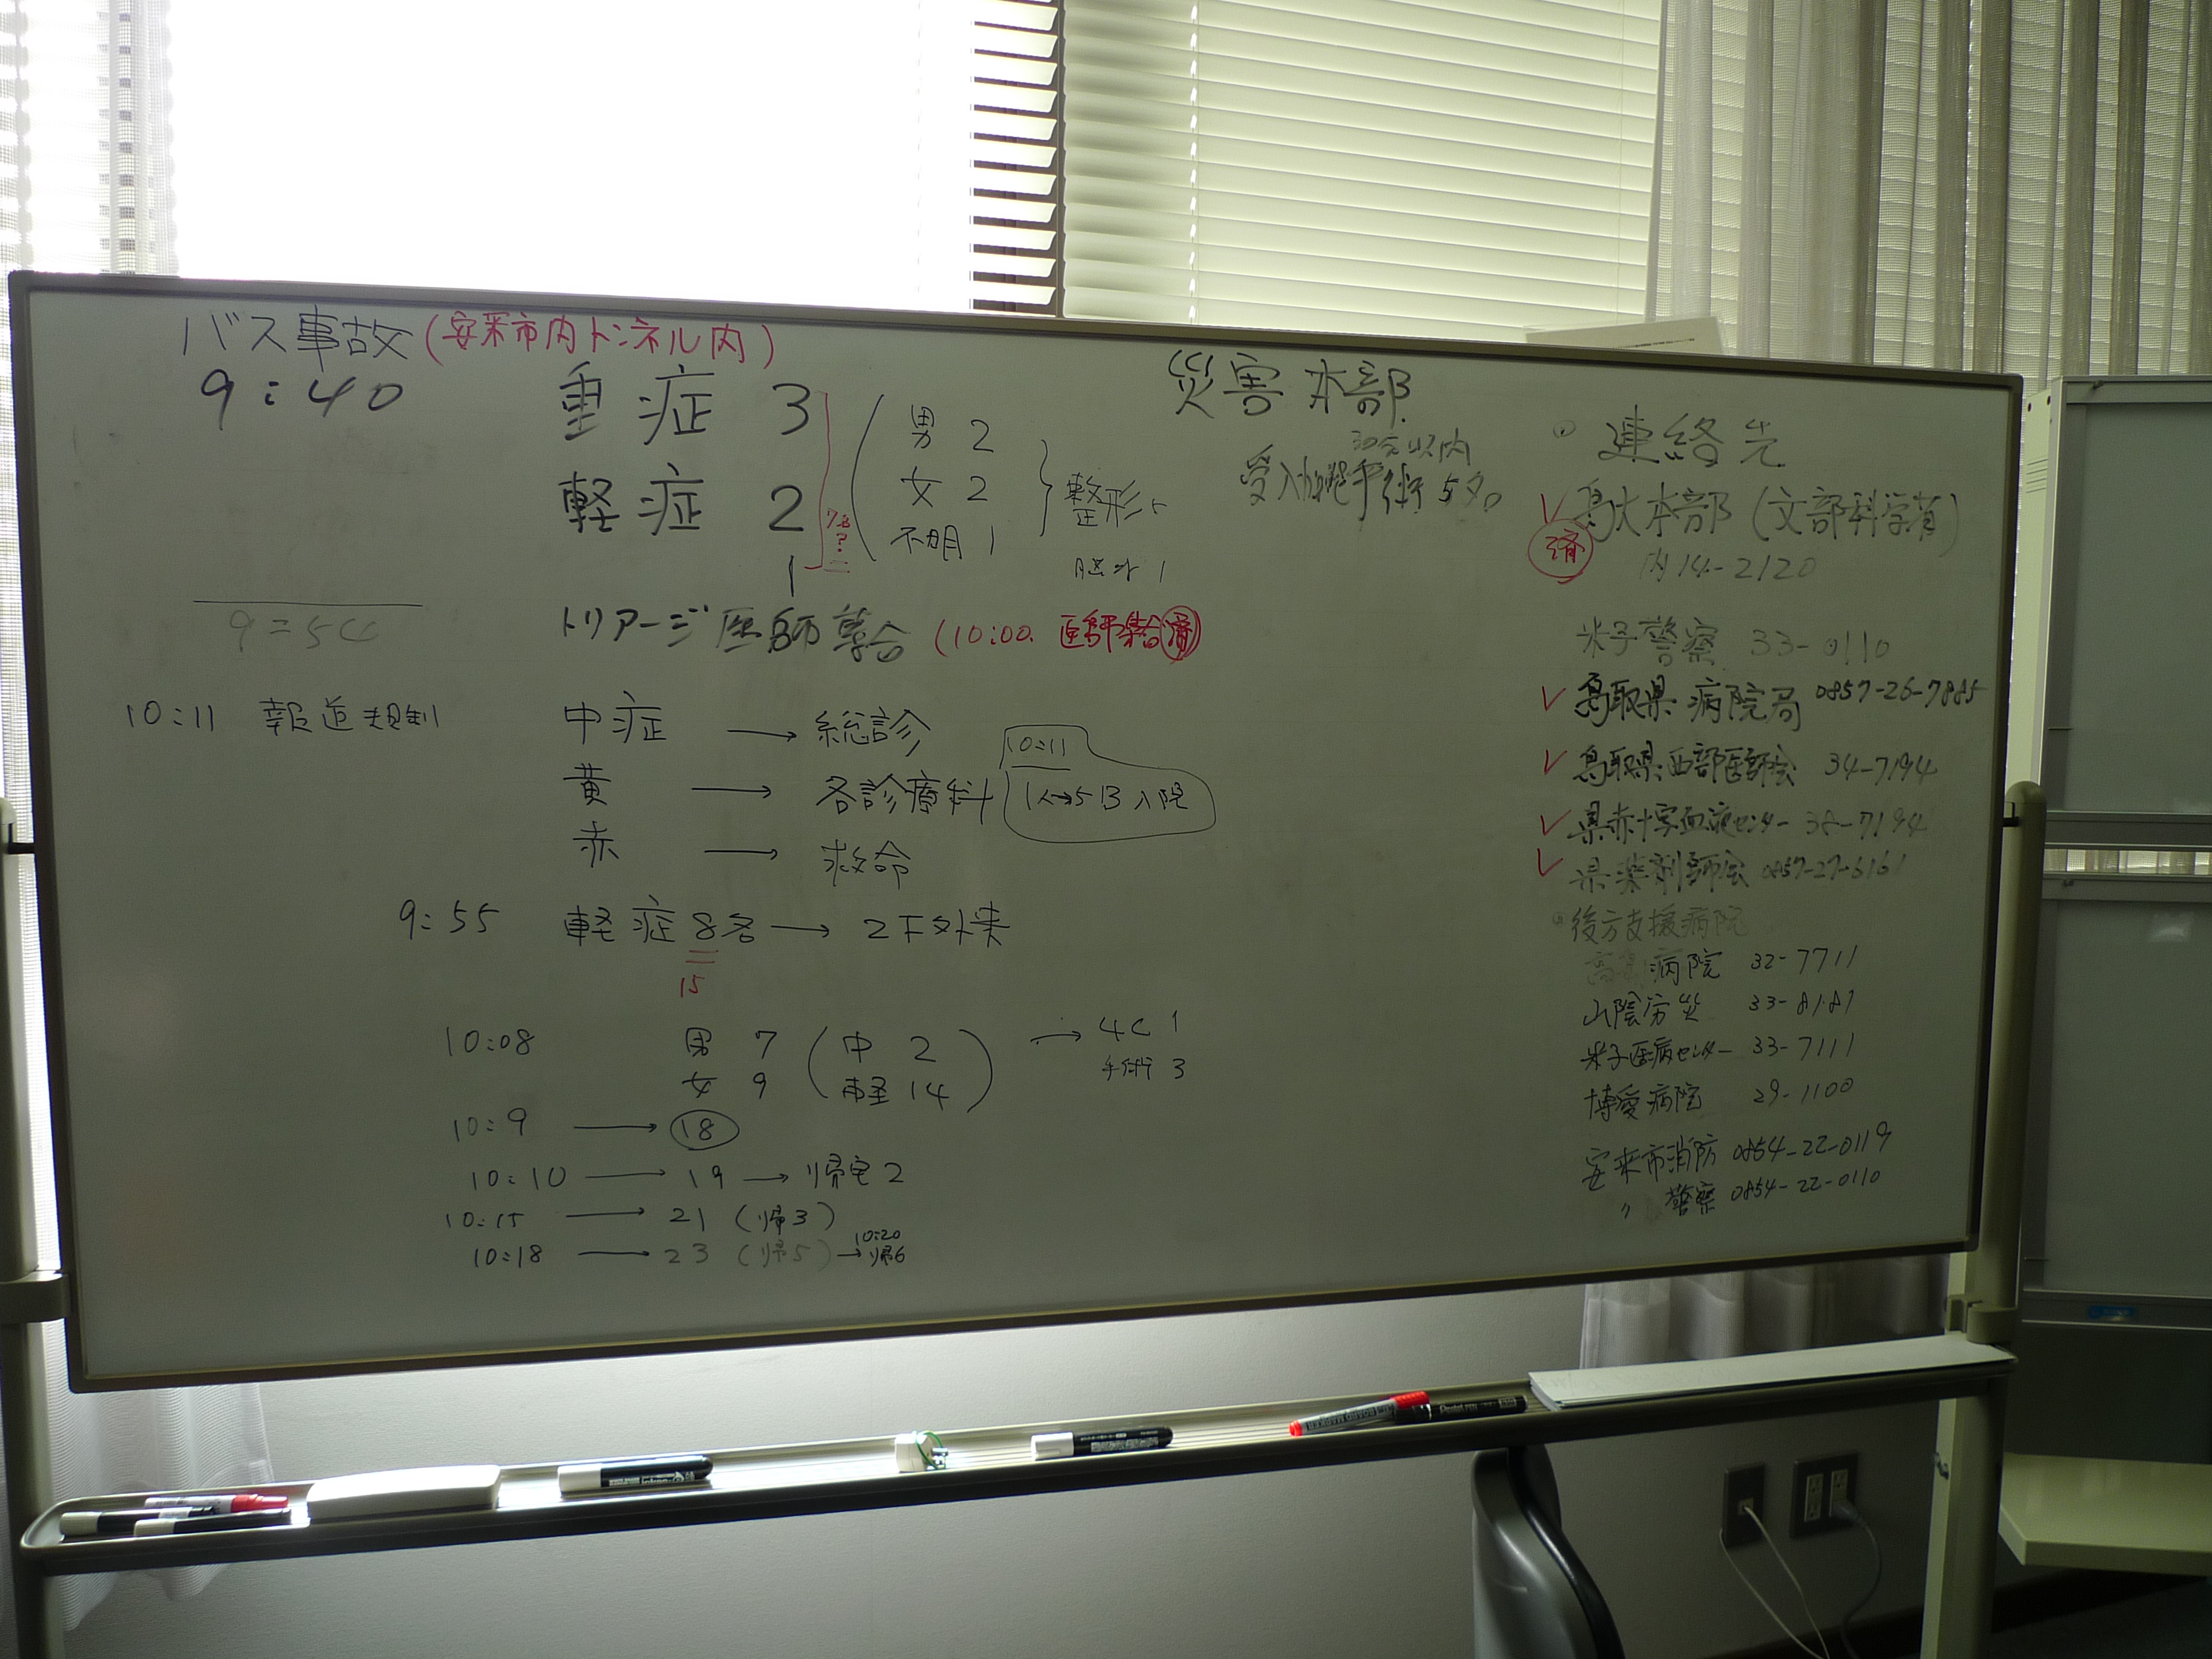 バス事故 (安来市内トンネル内)
9:40
重症 3
軽症 2
1
男 2
女 2
不明 1
整形
脳外 1
9=54
トリアージ医師集合 (10:00. 医師集合 済)
10:11 報道規制
中症 → 総診
黄 → 各診療科
赤 → 救命
10:11
1人→5B入院
9:55 軽症 8名 → 2F外来
15
10:08 男 7 (中 2
女 9 軽 14)
→ 4C 1
手術 3
10:9 → 18
10:10 → 19 → 帰宅2
10:15 → 21 (帰3)
10:18 → 23 (帰5) → 帰6
10:20
災害本部
30分以内
受入可能手術 5名
連絡先
鳥大本部 (文部科学省)
済
内14-2120
米子警察 33-0110
鳥取県病院局 0857-26-7885
鳥取県西部医師会 34-7194
県赤十字血液センター 38-7194
県薬剤師会 0857-27-6161
後方支援病院
病院 32-7711
山陰労災 33-8181
米子医療センター 33-7111
博愛病院 29-1100
安来市消防 0854-22-0119
〃 警察 0854-22-0110